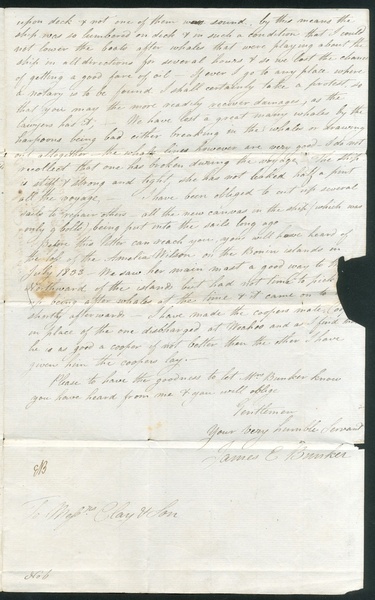 upon deck & not one of them was sound. by this means the
ship was so lumbered on deck & in such a condition that I could
not lower the boats after whales that were playing about the
ship in all directions for several hours & so we lost the chance
of getting a good fare of oil — If ever I go to any place where
a notary is to be found I shall certainly take a protest so
that you may the more readily recover damages, as the
lawyers has it; — We have lost a great many whales by the
harpoons being bad either breaking in the whales or drawing
out altogether — the whale lines however are very good I do not
recollect that one has broken during the voyage, — The ship
is stiff & strong and tight, she has not leaked half a pint
all the voyage. — I have been obliged to cut up several
sails to repair others — all the new canvas in the ship which was
only 9 bolts being put into the sails long ago
Before this letter can reach you, you will have heard of
the loss of the Amelia Wilson on the Bonin islands in
July 1833 — We saw her main mast a good way to the
Westward of the islands but had not time to pick
being after whales at the time & it came on to
shortly afterwards — I have made the coopers mate
in place of the one discharged at Woahoo and as I find
he is as good a cooper if not better than the other I have
given him the coopers lay —
Please to have the goodness to let Mrs Bunker know
you have heard from me & you will oblige
Gentlemen
Your very humble Servant
James E Bunker
To Messrs Clay & Son